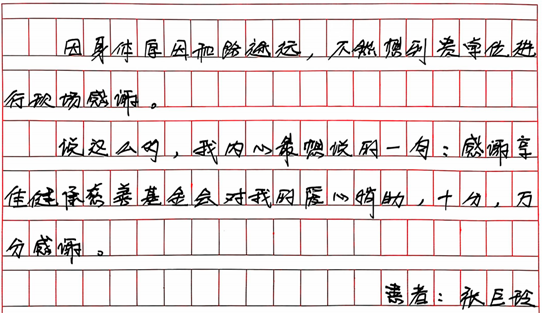 因身体原因和路途远，不能想到贵单位进
行现场感谢。
说这么多，我内心最想说的一句：感谢享
佳健康慈善基金会对我的爱心捐助，十分，万
分感谢。
患者：张巨玲